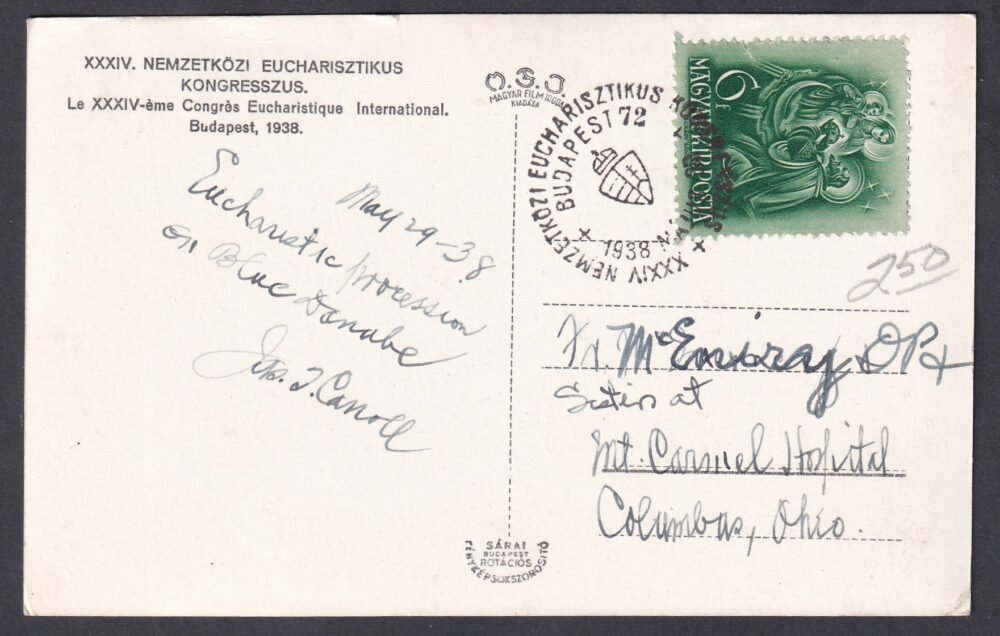 XXXIV. NEMZETKÖZI EUCHARISZTIKUS
KONGRESSZUS.
Le XXXIV-ème Congrès Eucharistique International.
Budapest, 1938.
May 29-38
Eucharistic procession
on Blue Danube
Jos. J. Carroll
MAGYAR FILM IRODA
KIADÁSA
XXXIV NEMZETKÖZI EUCHARISZTIKUS
BUDAPEST 72
1938
6 F
MAGYAR KIR. POSTA
250
Fr. Mc OP &
Sisters at
Mt. Carmel Hospital
Columbus, Ohio.
SÁRAI
BUDAPEST
ROTÁCIÓS
FÉNYKÉPSOKSZOROSITÓ